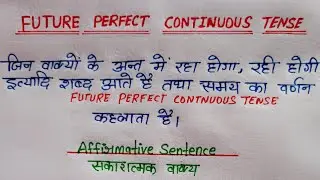 FUTURE PERFECT CONTINUOUS TENSE
जिन वाक्यों के अन्त में रहा होगा, रही होगी
इत्यादि शब्द आते है तथा समय का वर्णन
FUTURE PERFECT CONTNUOUS TENSE
कहलाता है।
Affirmative Sentence
सकारात्मक वाक्य